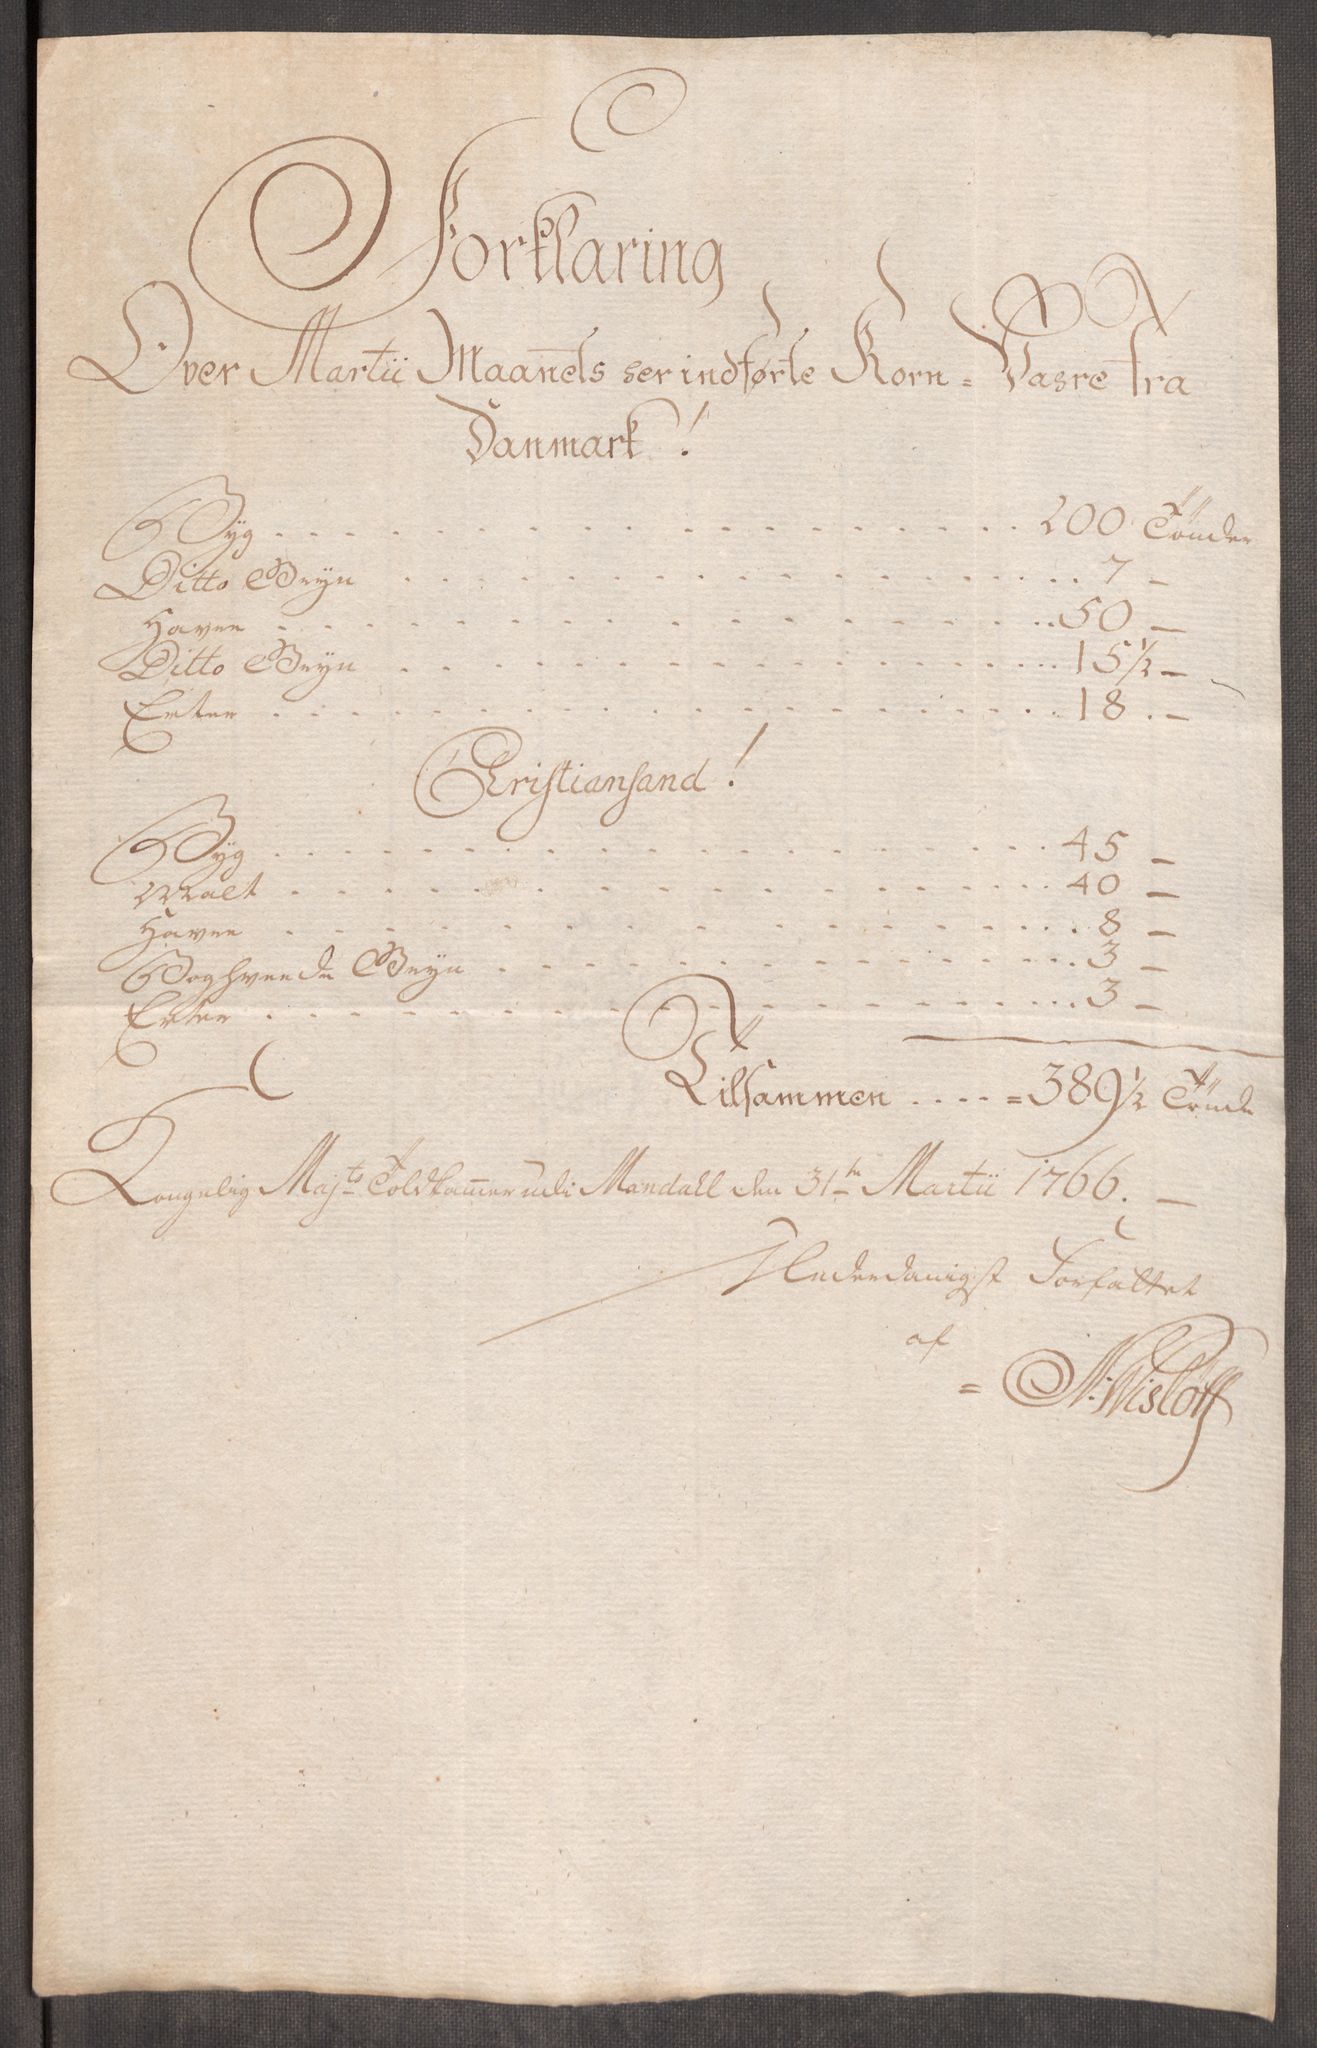 Forklaring
Over Martii Maanets her indførte Korn = Vahre fra
Danmark!
Byg . . . . . . . . . . 200 Tønder
Ditto Gryn . . . . . . . . . . 7 —
Havre . . . . . . . . . . 50 —
Ditto Gryn . . . . . . . . . . 15 1/2 —
Erter . . . . . . . . . . 18 . —
Christiansand!
Byg . . . . . . . . . . 45 —
Malt . . . . . . . . . . 40 —
Havre . . . . . . . . . . 8 —
Boghveede Gryn . . . . . . . . . . 3 —
Erter . . . . . . . . . . 3 —
Tilsammen . . . . = 389 1/2 Tønde
Kongelig Majts Toldkammer udi Mandall den 31te Martii 1766. —
Underdanigst Forfattet
af
= N: Wisløff